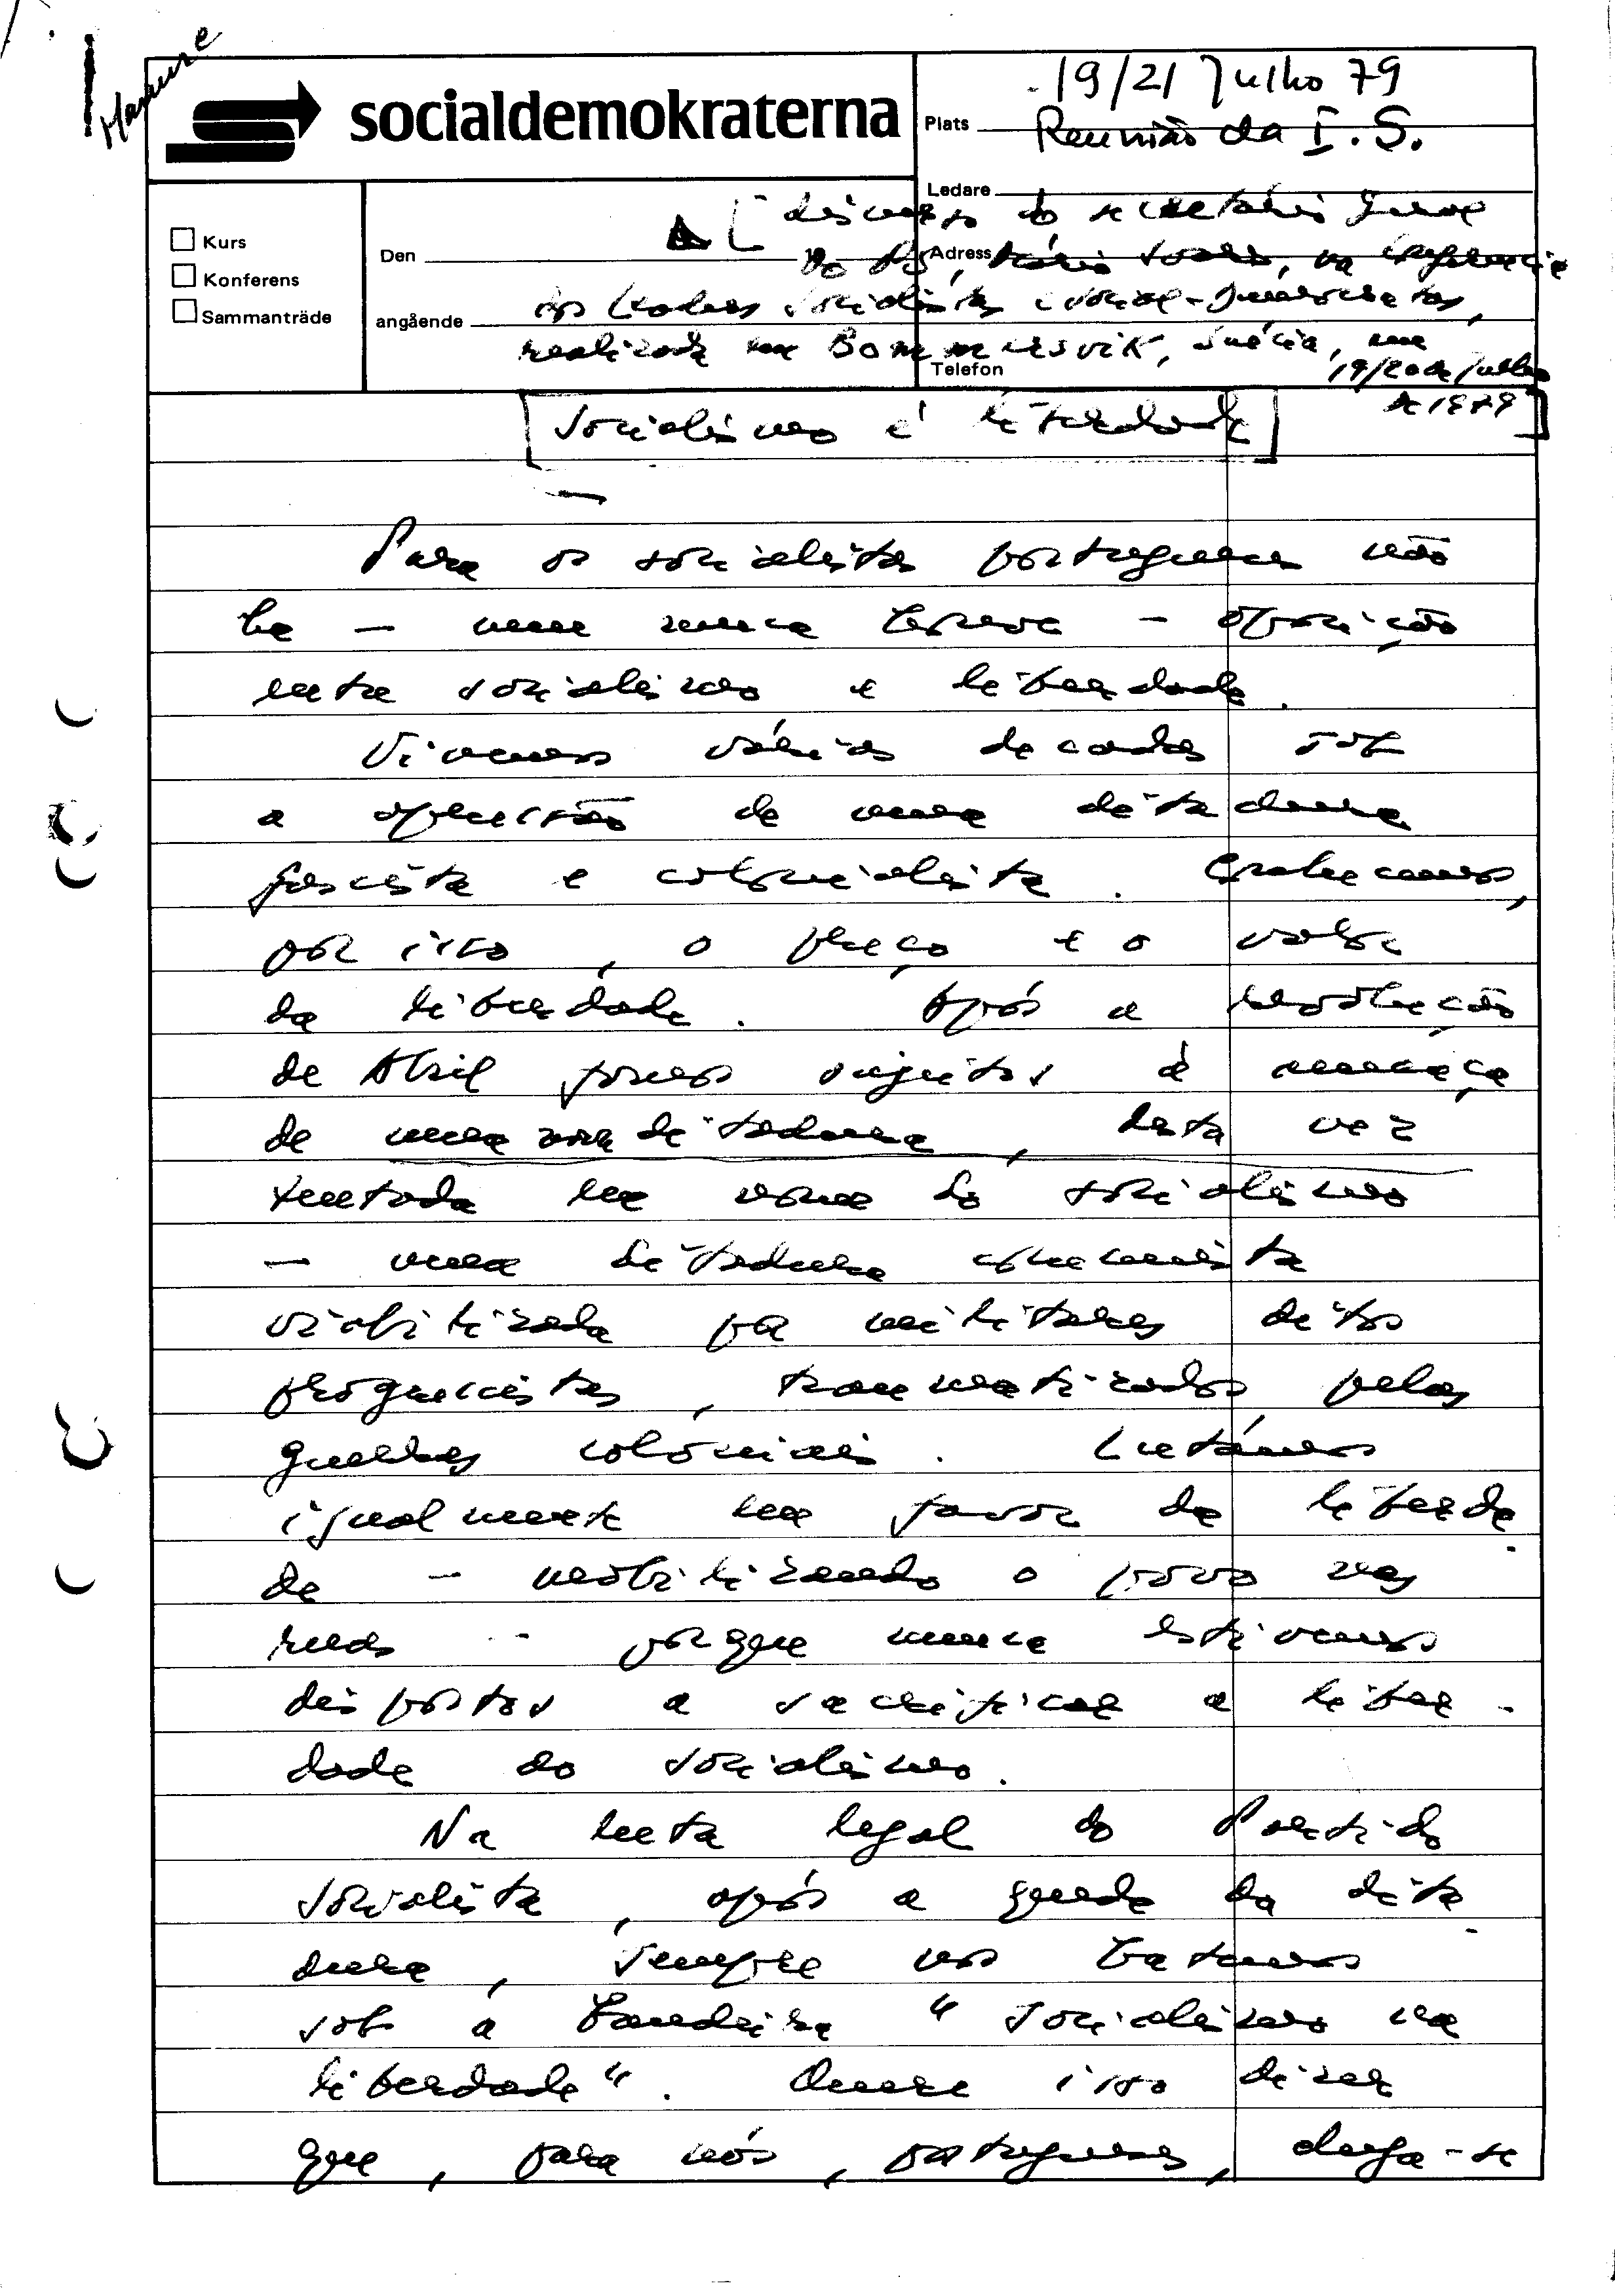 socialdemokraterna
19/21 Julho 79
Plats Reunião da I. S.
Ledare
Kurs
Konferens
Sammanträde
Den
Adress
angående
Telefon
[discurso do secretário geral
do PS, Mário Soares, na Conferência
dos líderes socialistas e social-democratas,
realizada em Bommersvik, Suécia, em
19/20 de Julho
de 1979]
[Socialismo e liberdade]
Para os socialistas portugueses não
há - nem nunca houve - oposição
entre socialismo e liberdade.
Vivemos várias decadas sob
a opressão de uma ditadura
fascista e colonialista. Conhecemos,
por isso, o preço e o valor
da liberdade. Após a revolução
de Abril fomos sujeitos à ameaça
de uma nova ditadura, desta vez
tentada em nome do socialismo
- uma ditadura comunista
viabilizada por militares ditos
progressistas, traumatizados pelas
guerras coloniais. Lutámos
igualmente em favor da liberda
de - mobilizando o povo nas
ruas - porque nunca estivemos
dispostos a sacrificar a liber-
dade ao socialismo.
Na luta legal do Partido
Socialista, após a queda da dita
dura, sempre nos batemos
sob a bandeira "socialismo na
liberdade". Quere isso dizer
que, para nós, portugueses, chega-se